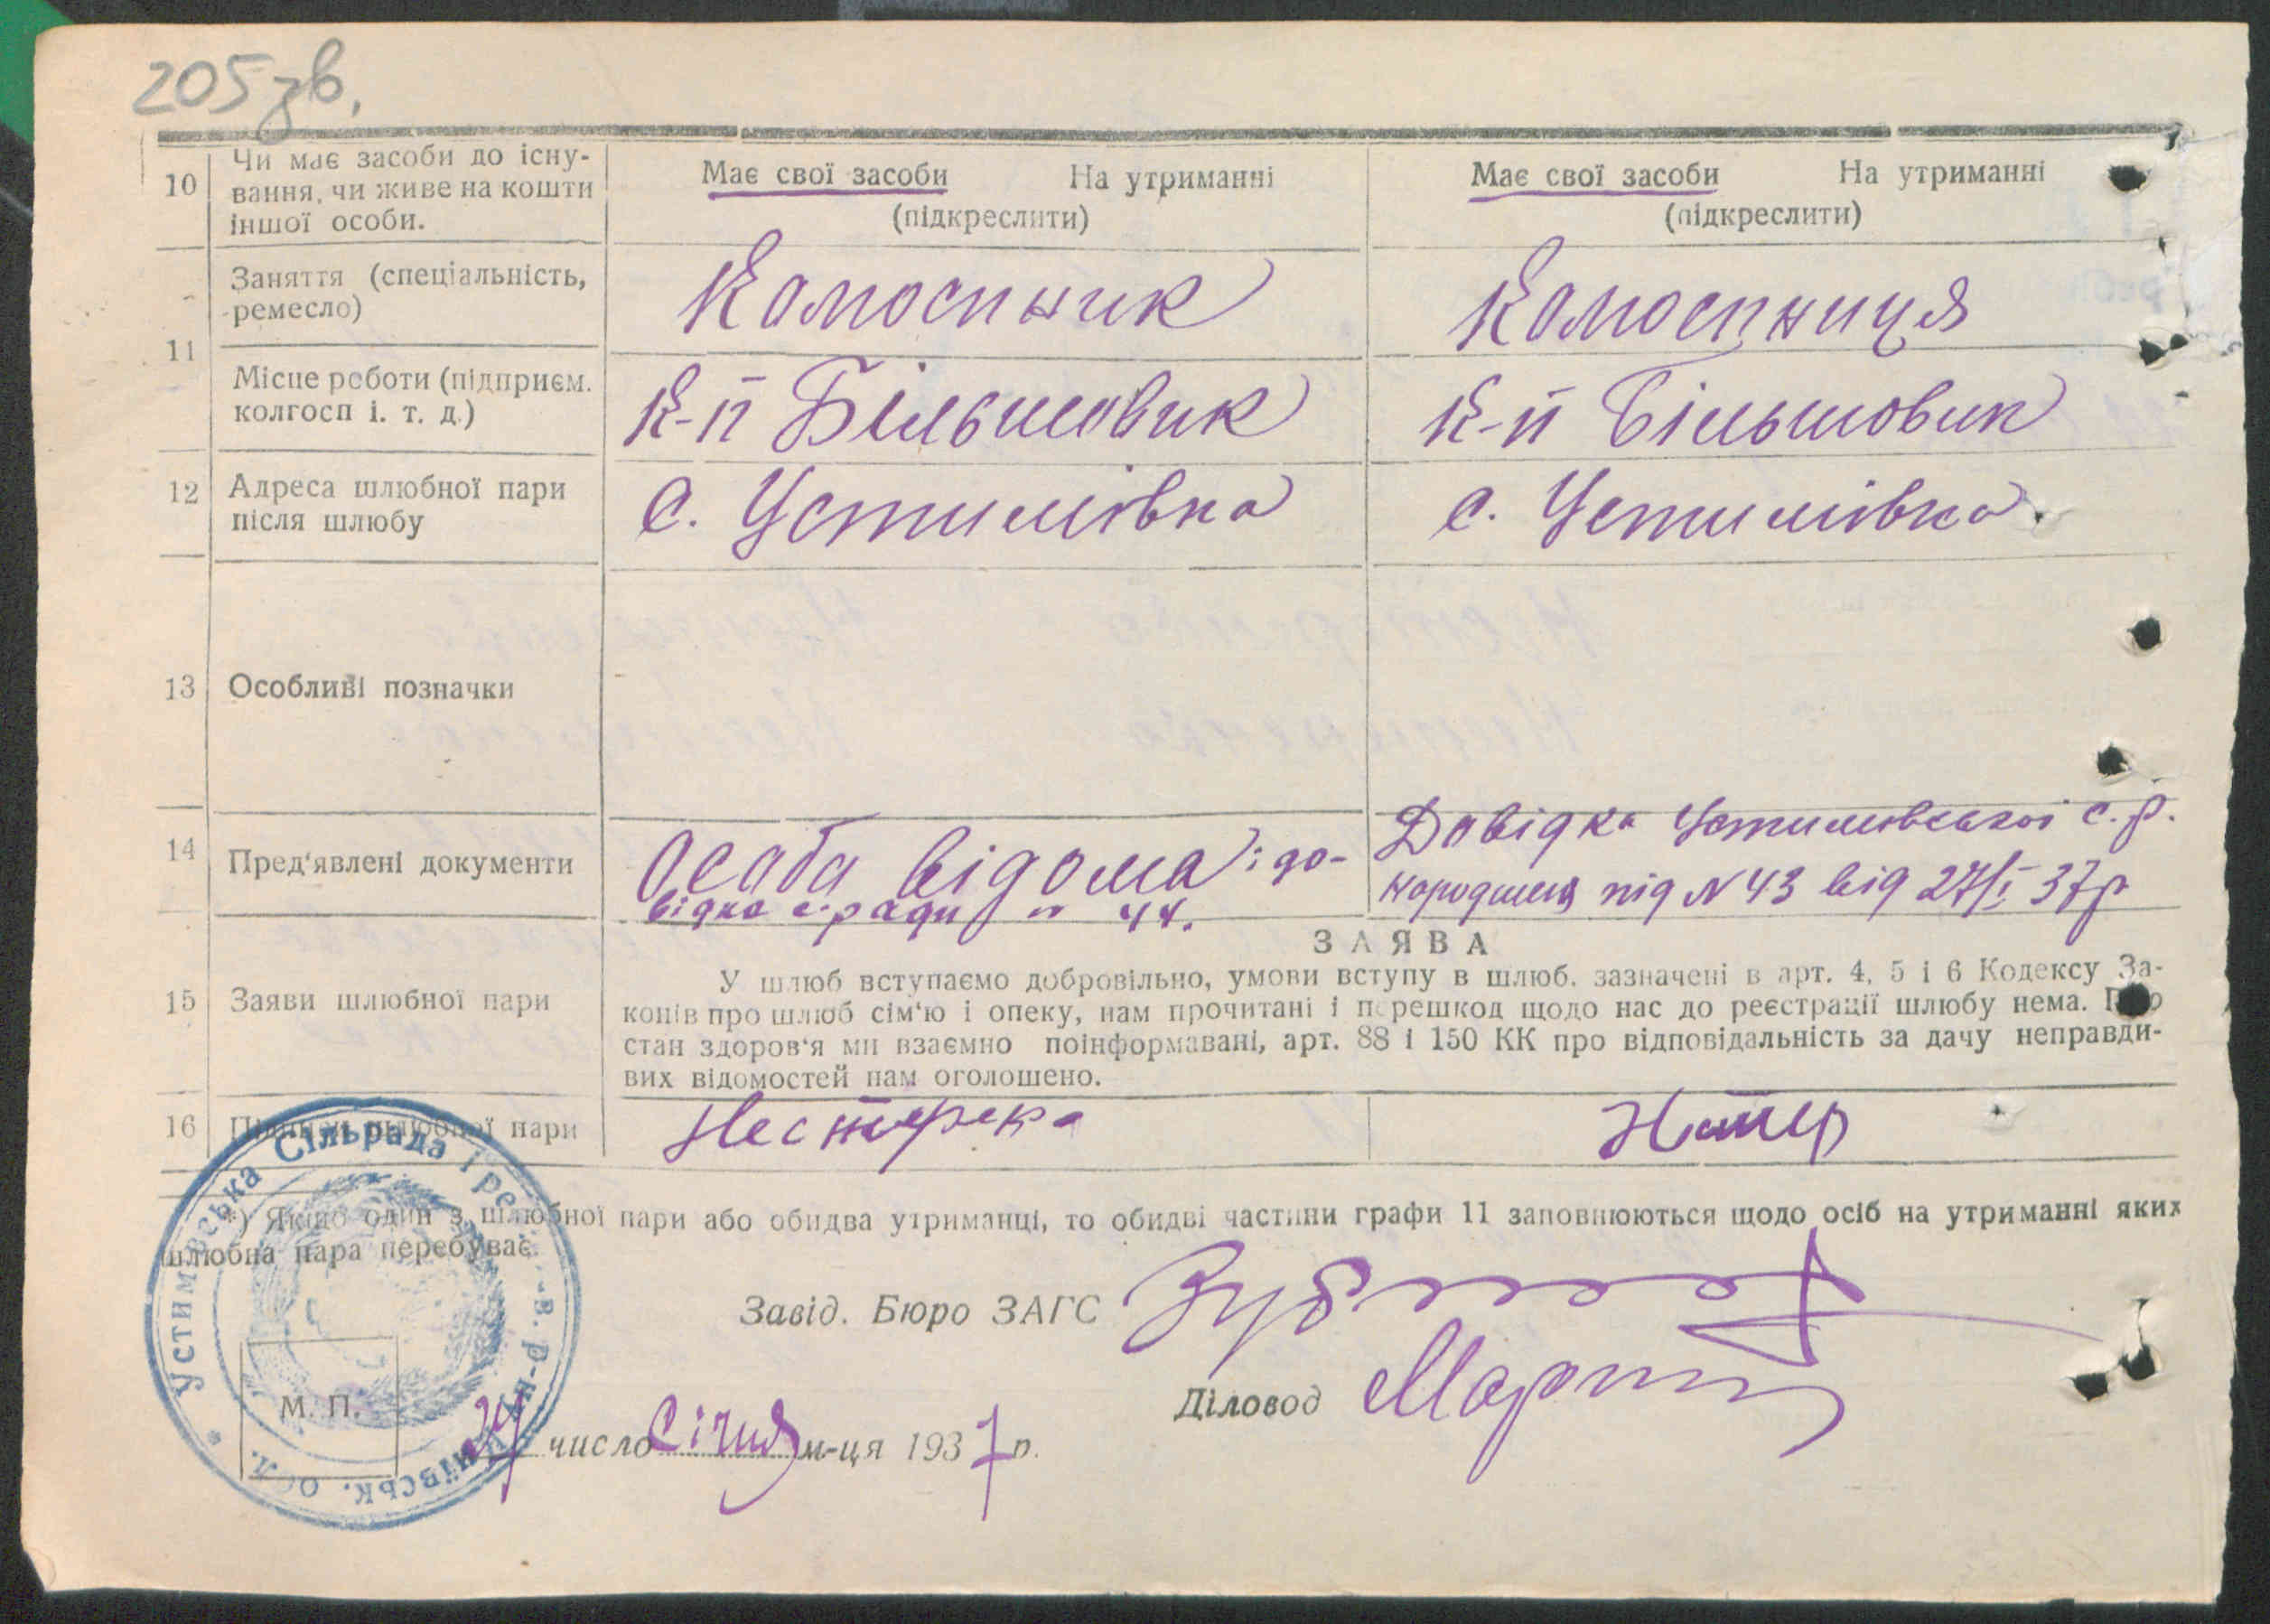 205 зв.
10 Чи має засоби до існу-
вання, чи живе на кошти
іншої особи.
Має свої засоби На утриманні
(підкреслити)
Має свої засоби На утриманні
(підкреслити)
11 Заняття (спеціальність,
ремесло)
Колоспник
Колоспниця
Місце роботи (підприєм.
колгосп і. т. д.)
К-п Більшовик
К-п Більшовик
12 Адреса шлюбної пари
після шлюбу
с. Устимівка
с. Устимівка
13 Особливі позначки
14 Пред'явлені документи
Особа відома: до-
відка с-ради № 44.
Довідка Устимівської с. р.
народження під N 43 від 27/I 37р
15 Заяви шлюбної пари
ЗАЯВА
У шлюб вступаємо добровільно, умови вступу в шлюб. зазначені в арт. 4, 5 і 6 Кодексу За-
конів про шлюб сім'ю і опеку, нам прочитані і перешкод щодо нас до реєстрації шлюбу нема. Про
стан здоров'я ми взаємно поінформавані, арт. 88 і 150 КК про відповідальність за дачу неправди-
вих відомостей нам оголошено.
16 Підписи шлюбної пари
Нестерека
*) Якщо один з шлюбної пари або обидва утриманці, то обидві частини графи 11 заповнюються щодо осіб на утриманні яких
шлюбна пара перебуває.
Завід. Бюро ЗАГС
Діловод
М. П.
27 число Січня м-ця 1937 р.
Устимівська Сільрада
Київськ. обл.